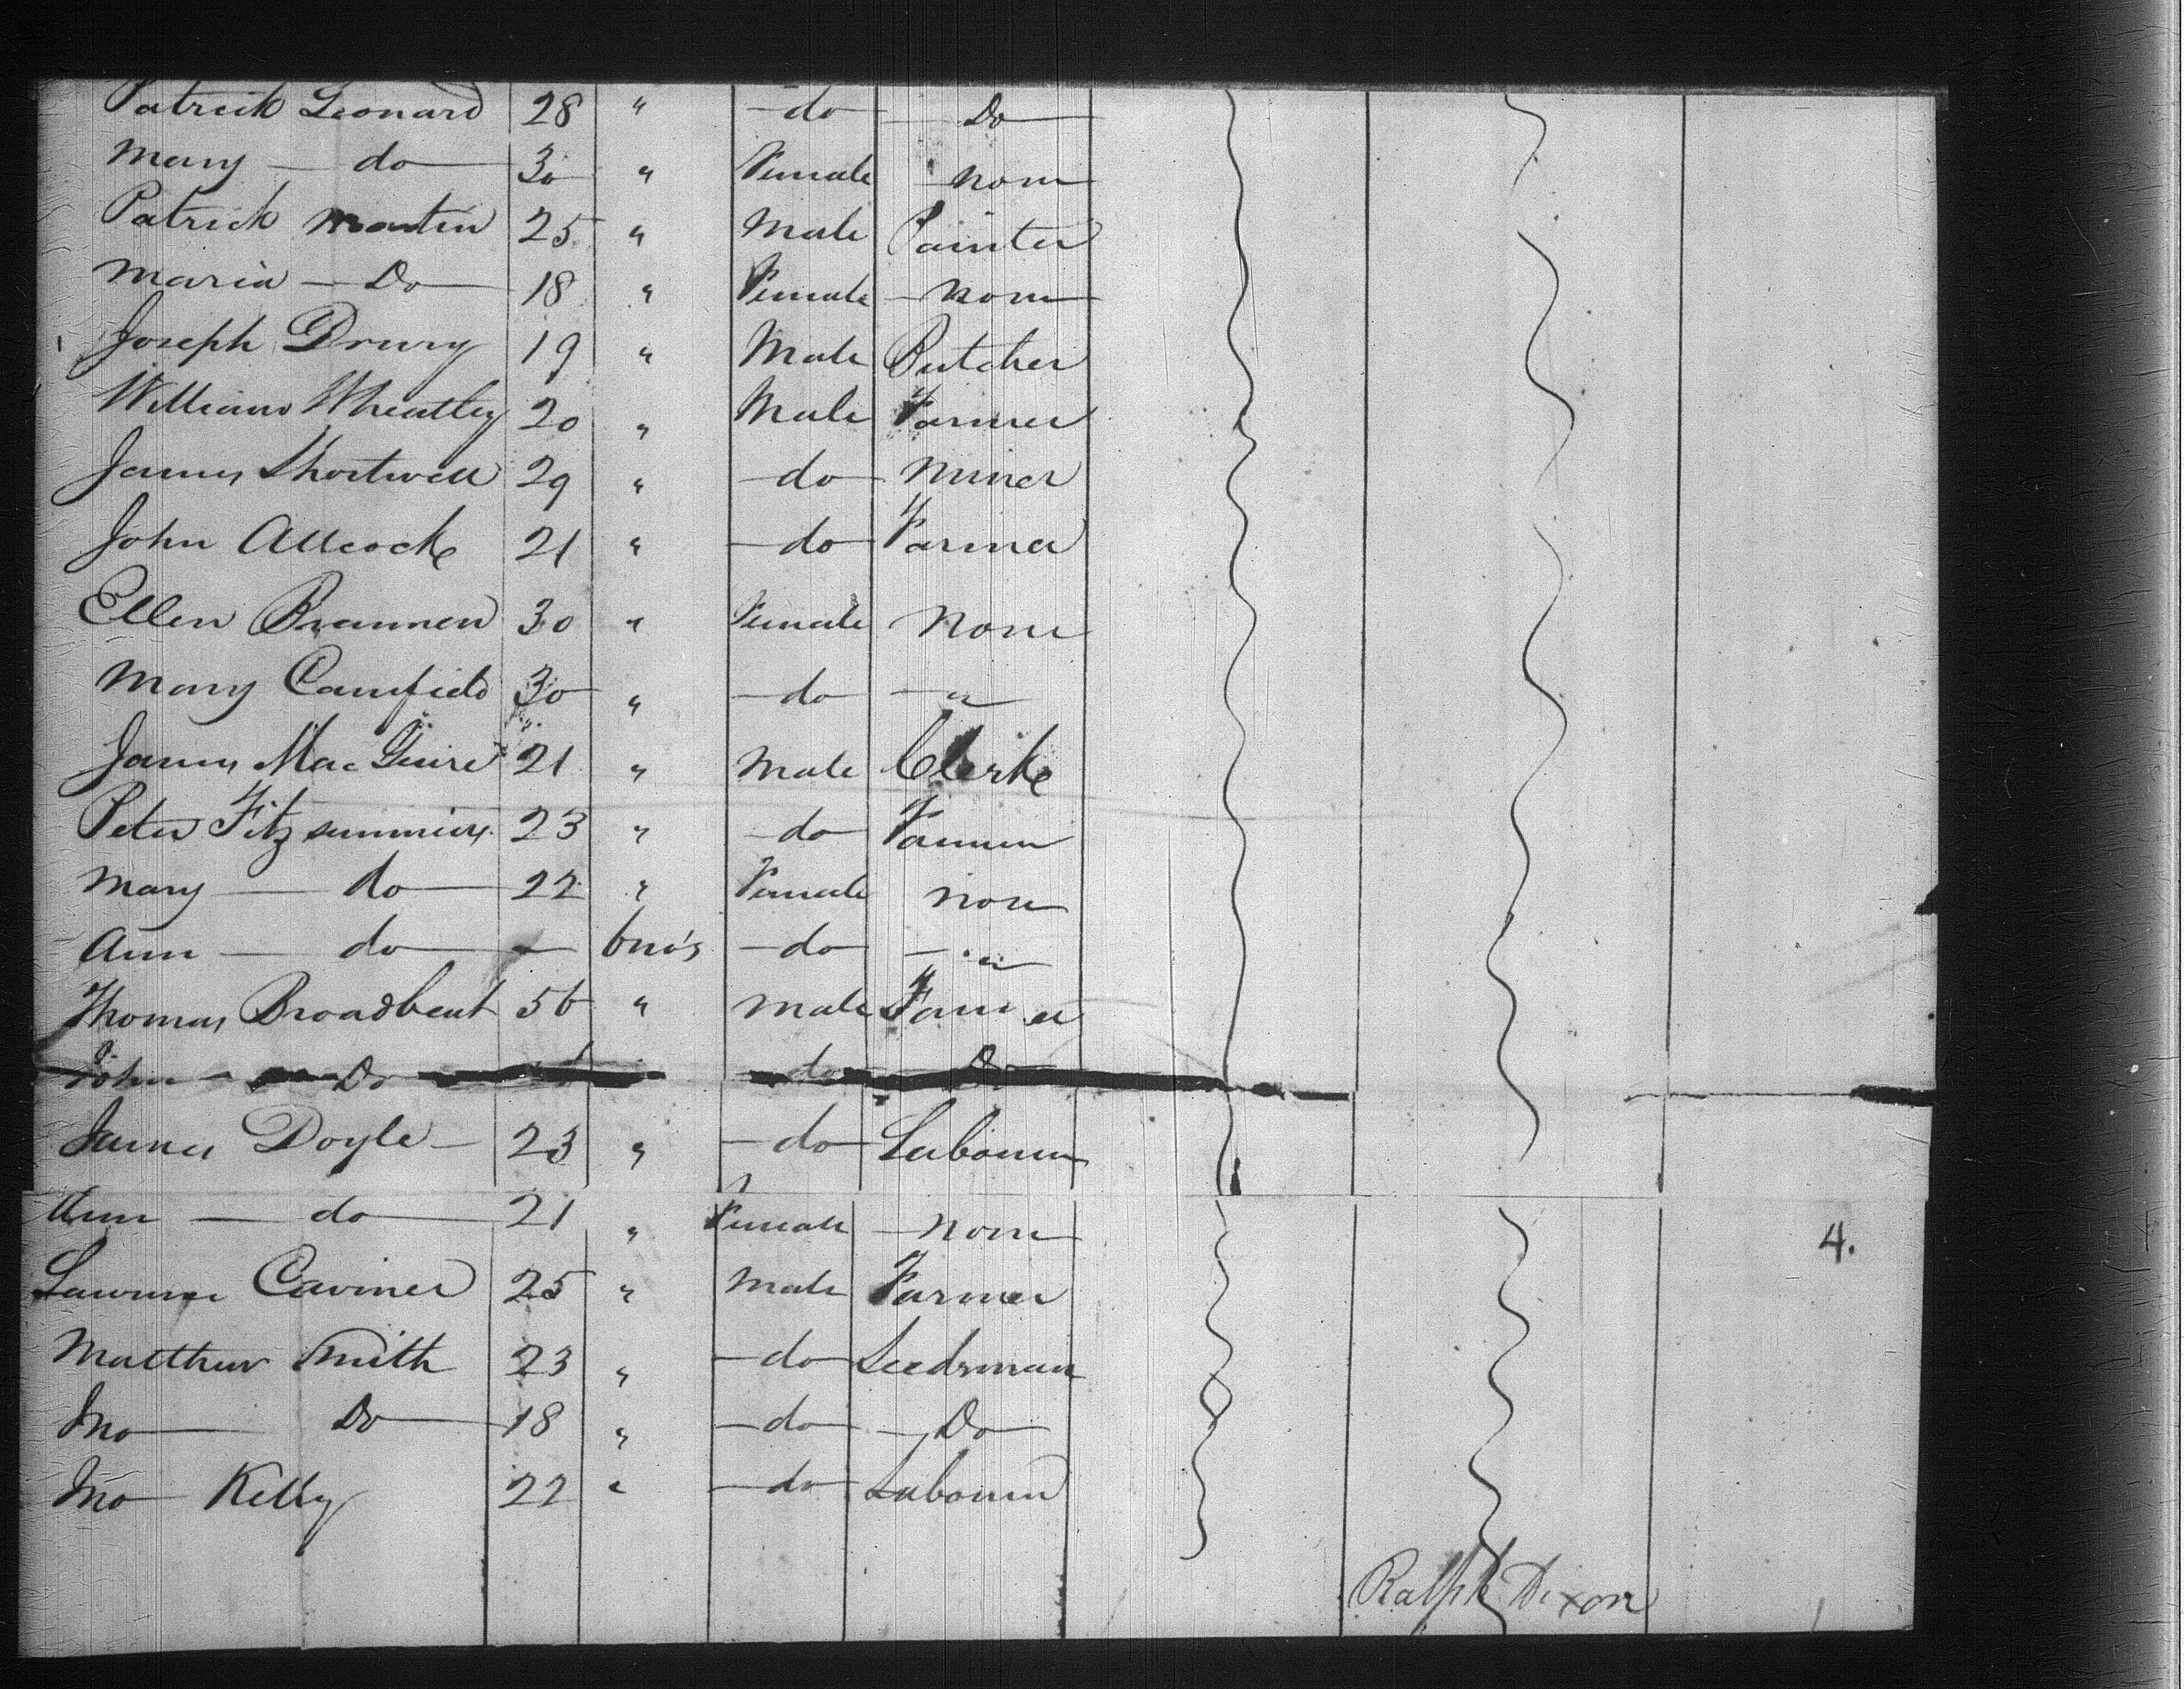 Patrick Leonard 28 " do Do
Mary do 30 " Female none
Patrick Martin 25 " Male Painter
Maria Do 18 " Female none
Joseph Drury 19 " Male Butcher
William Wheatley 20 " Male Farmer
James Shortwell 29 " do Miner
John Allcock 21 " do Farmer
Ellen Brannen 30 " Female None
Mary Camfield 30 " do "
James MacGuire 21 " Male Clerke
Peter Fitzsummins 23 " do Farmer
Mary do 22 " Female none
Ann do 6 mo's do "
Thomas Broadbent 56 " Male Farmer
John Do do Do
James Doyle 23 " do Labourer
Ann do 21 " Female none
4.
Lawrence Caviner 25 " Male Farmer
Matthew Smith 23 " do Seedsman
Jno Do 18 " do Do
Jno Kelly 22 " do Labourer
Ralph Dixon